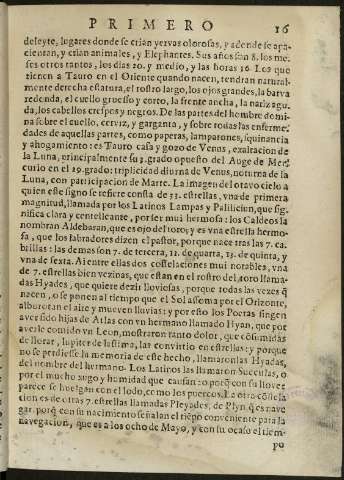 PRIMERO 16
deleyte, lugares donde se crian yervas olorosas, y adonde se apa-
cientan, y crian animales, y Elephantes. Sus años son 8. los me-
ses otros tantos, los dias 20. y medio, y las horas 16. Los que
tienen a Tauro en el Oriente quando nacen, tendran natural-
mente derecha estatura, el rostro largo, los ojos grandes, la barva
redonda, el cuello gruesso y corto, la frente ancha, la nariz agu
da, los cabellos crespos y negros. De las partes del hombre domi-
na sobre el cuello, cerviz, y garganta, y sobre todas las enferme-
dades de aquellas partes, como paperas, lamparones, squinancia
y ahogamiento: es Tauro casa y gozo de Venus, exaltacion de
la Luna, principalmente su 3. grado opuesto del Auge de Mer-
curio en el 19. grado: triplicidad diurna de Venus, noturna de la
Luna, con participacion de Marte. La imagen del otavo cielo a
quien este signo se refiere consta de 33. estrellas, una de primera
magnitud, llamada por los Latinos Lampas y Palilicium, que sig-
nifica clara y centelleante, por ser mui hermosa: los Caldeos la
nombran Aldebaran, que es ojo del toro; y es una estrella hermo-
sa, que los labradores dizen el pastor, porque nace tras las 7. ca-
brillas: las demas son 7. de tercera, 11. de quarta, 13. de quinta, y
una de sexta. Ai entre ellas dos costelaciones mui notables, una
de 7. estrellas bien vezinas, que estan en el rostro del toro llama-
das Hyades, que quiere dezir lluviosas, porque todas las vezes q̃
nacen, o se ponen al tiempo que el Sol assoma por el Orizonte,
alborotan el aire y mueven lluvias: y por esto los Poetas fingen
aver sido hijas de Atlas con un hermano llamado Hyan, que por
averle comido un Leon, mostraron tanto dolor, que cõsumidas
de llorar, Iupiter de lastima, las convirtio en estrellas: y porque
no se perdiesse la memoria de este hecho, llamaronlas Hyadas,
del nombre del hermano. Los Latinos las llamaron Succulas, o
por el mucho sugo y humidad que causan: o porq̃ con su lluvia
parece se huelgan con el lodo, como los puercos. La otra cõstela
cion es de otras 7. estrellas llamadas Pleyades, de Plyn. q̃ es nave
gar. porq̃ con su nacimiento señalan el tiẽpo conveniente para la
navegacion, que es a los ocho de Mayo, y con su ocaso el tiem-
po